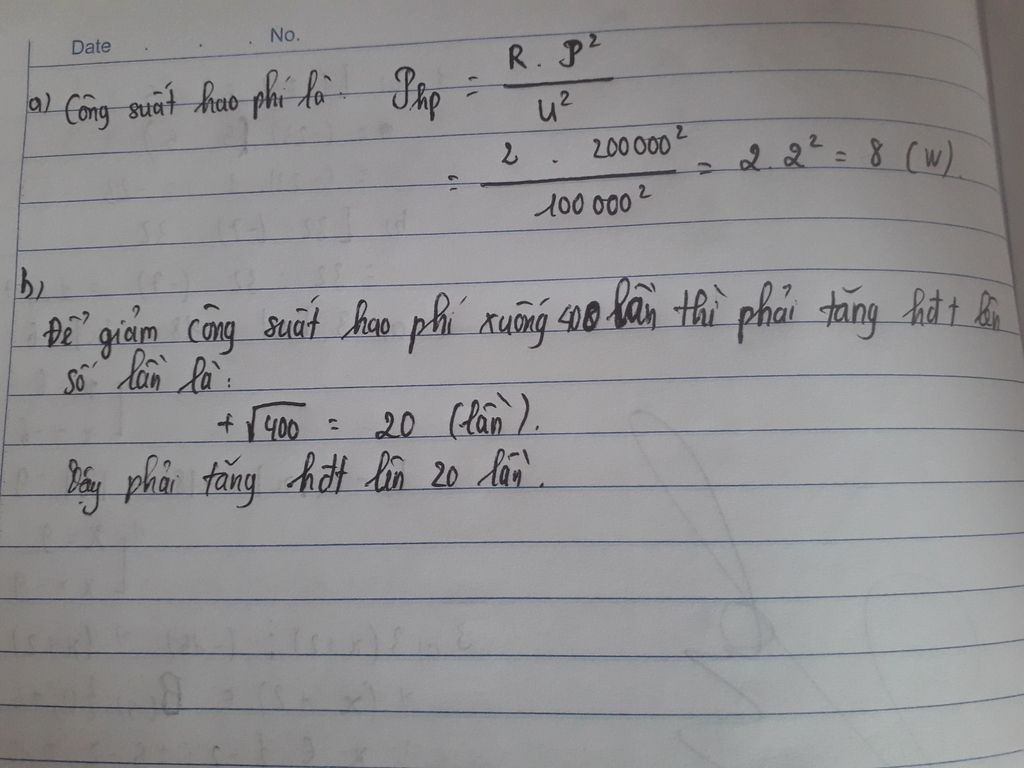 Date . . . No.
a) Công suất hao phí là: 𝒫hp = R . 𝒫² / U²
= 2 . 200000² / 100 000² = 2. 2² = 8 (W).
b,
Để giảm công suất hao phí xuống 400 lần thì phải tăng hđt lên
số lần là:
+ √400 = 20 (lần).
Vậy phải tăng hđt lên 20 lần.